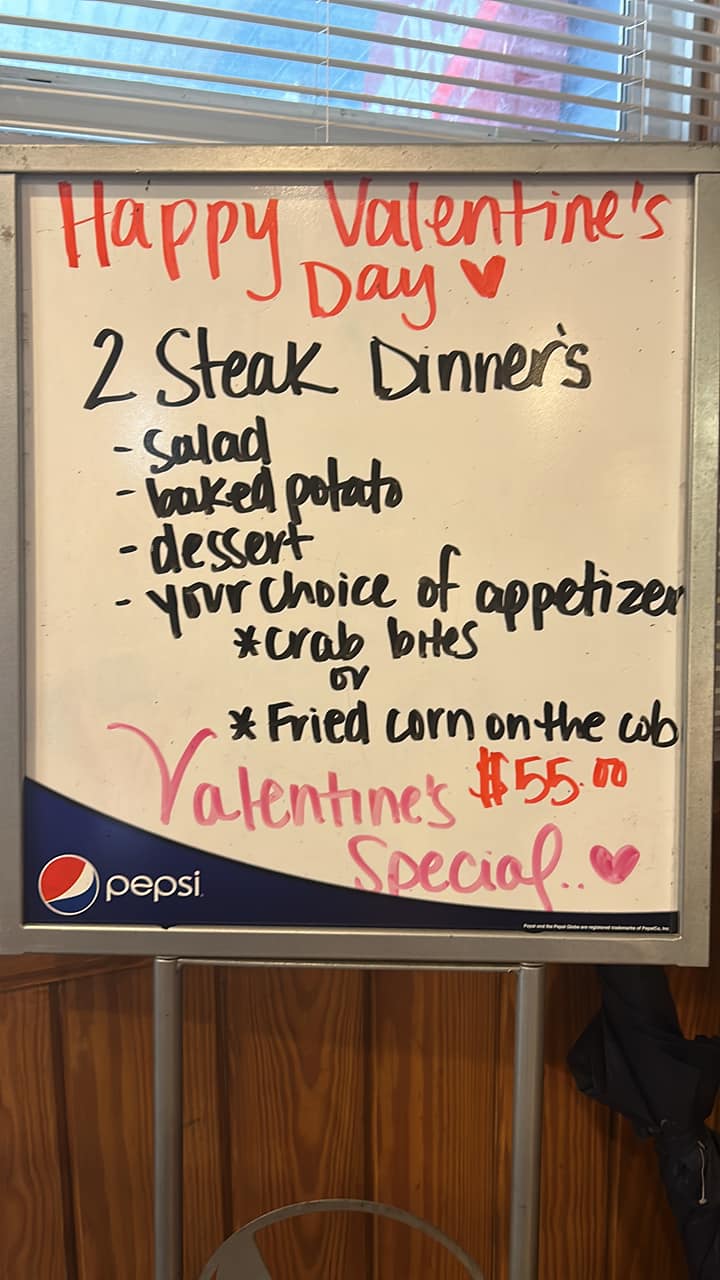 Happy Valentine's
Day ♥
2 Steak Dinner's
- salad
- baked potato
- dessert
- your choice of appetizer
*crab bites
or
* Fried corn on the cob
Valentine's $55.00
Special.. ♥
pepsi
Pepsi and the Pepsi Globe are registered trademarks of PepsiCo, Inc.